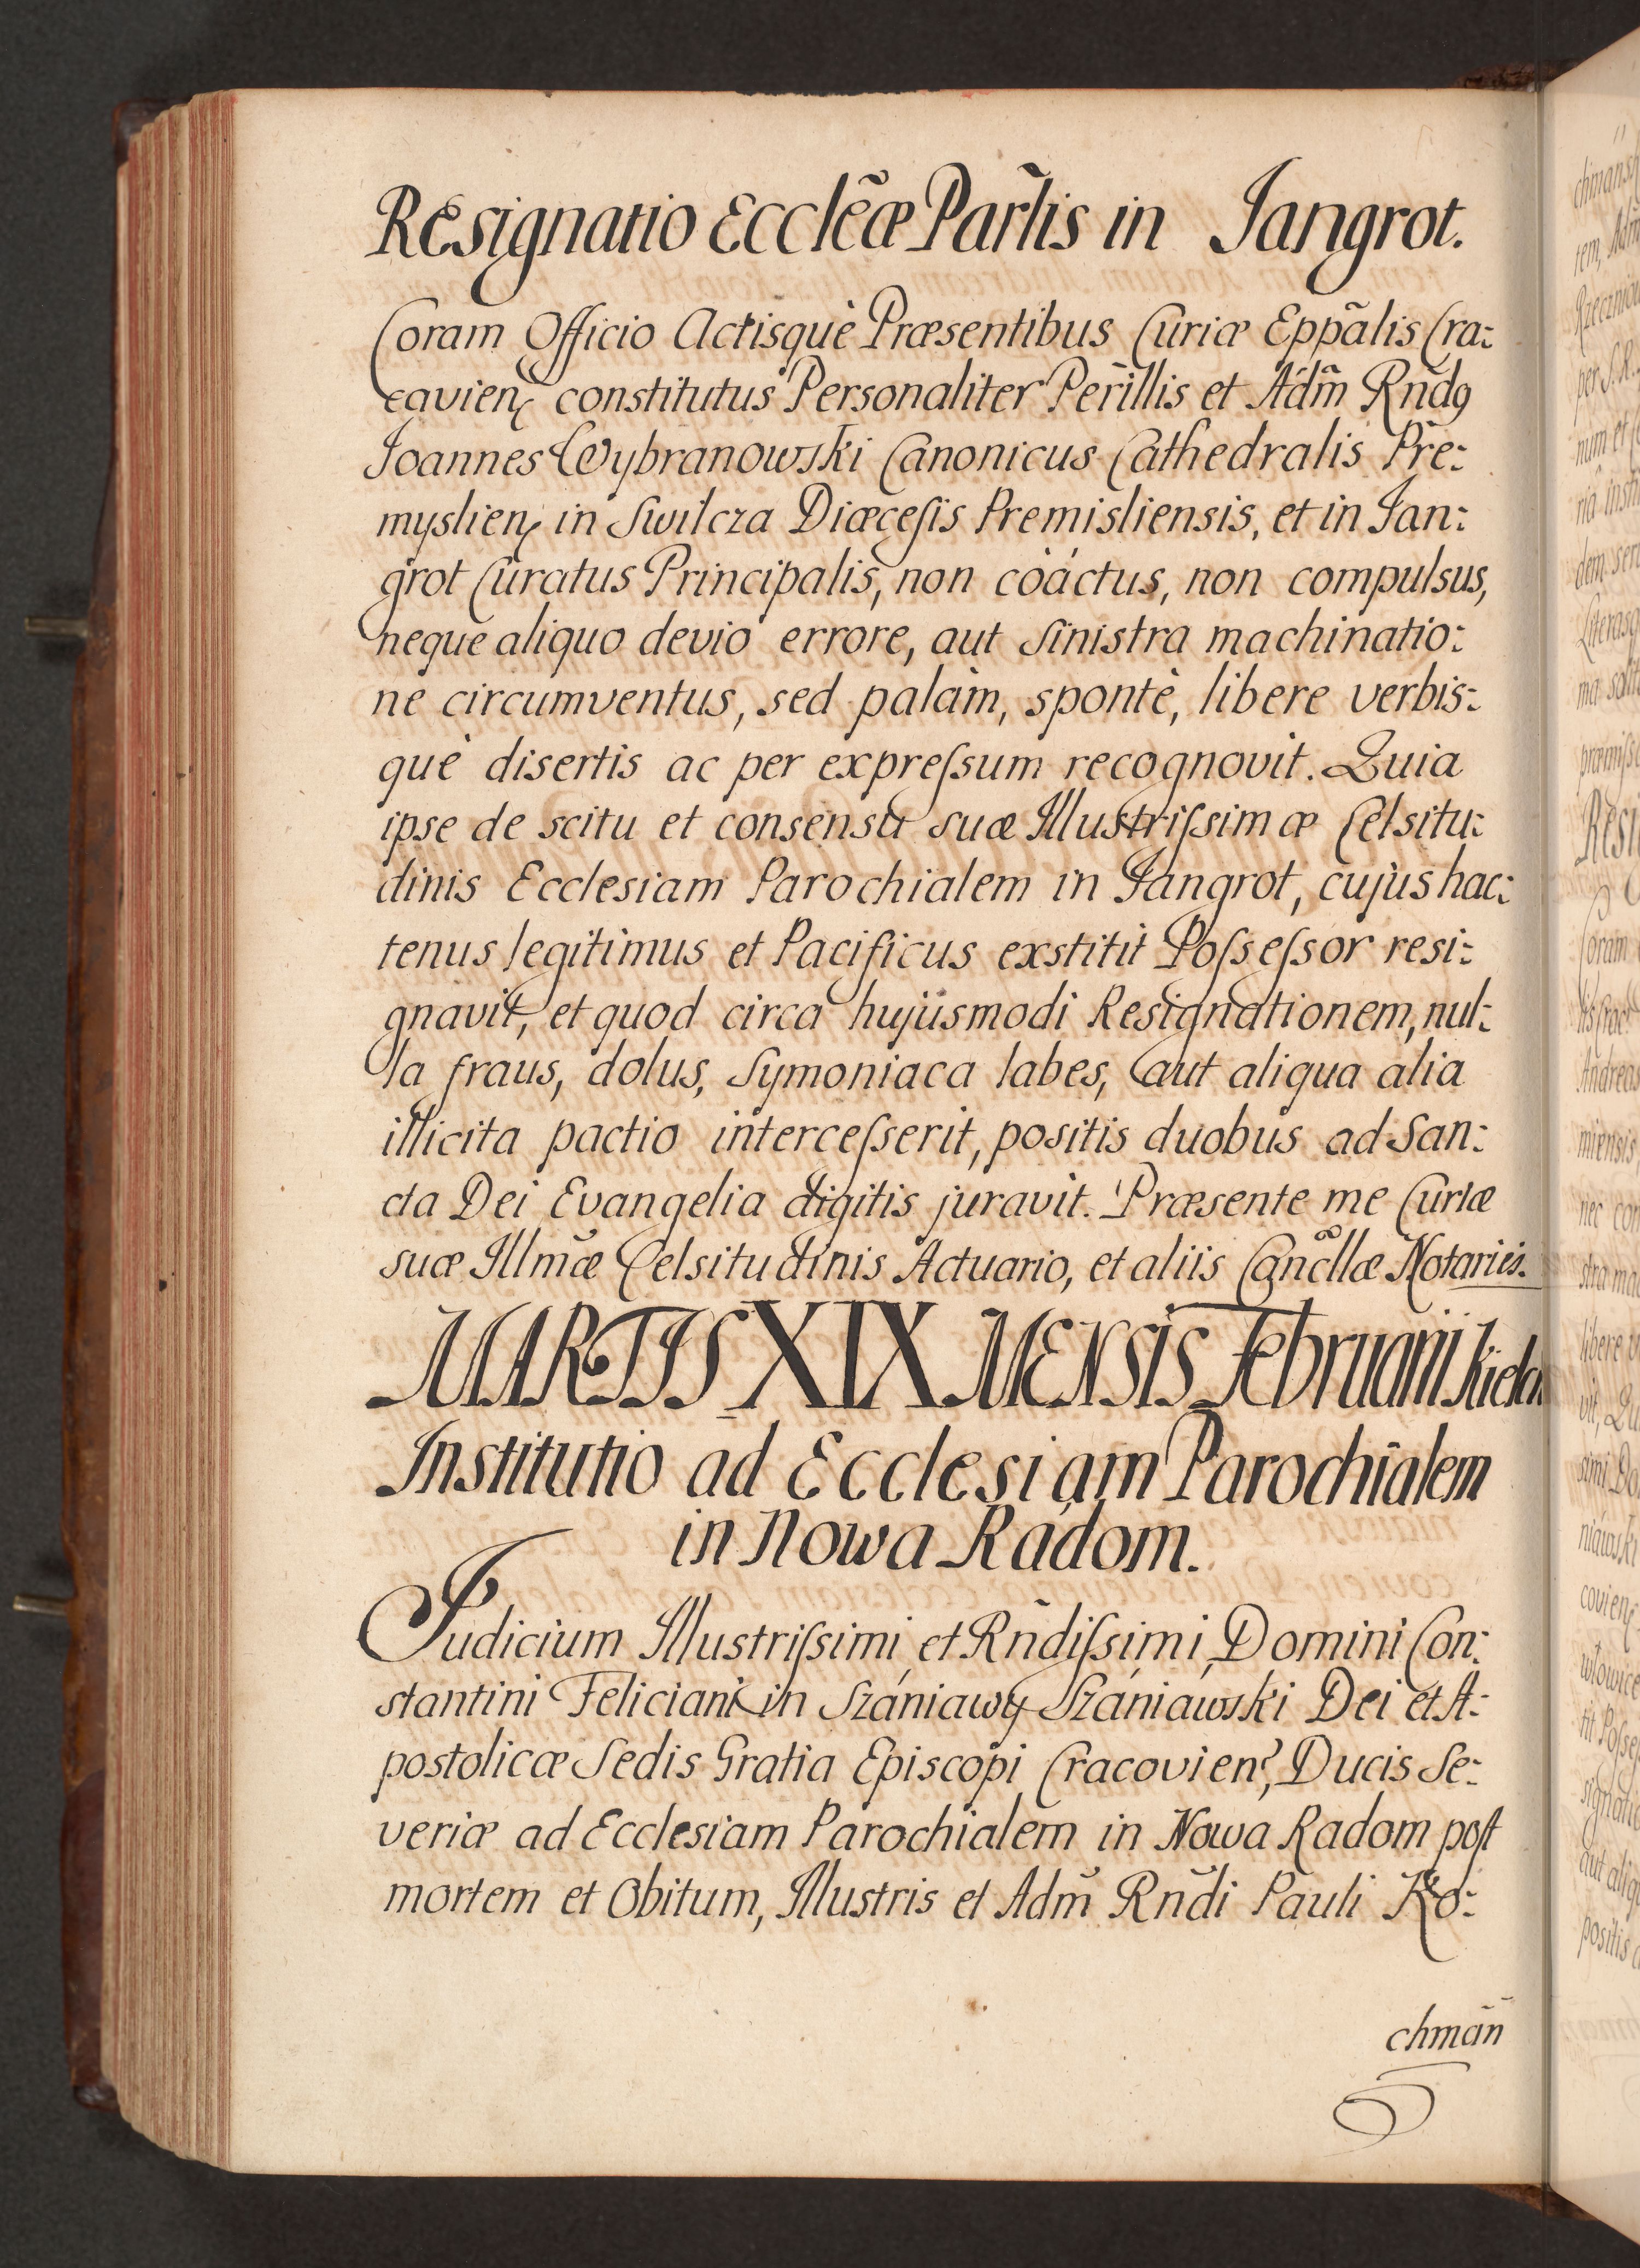 Resignatio Ecclẽæ Par̃lis in Jangrot.
Coram Officio Actisquè Præsentibus Curiæ Eppãlis Cra:
cavien̄ constitutus Personaliter Per̃illis et Adm̃ Rñdꝯ
Joannes Wybranowski Canonicus Cathedralis Pre:
myslien̄ in Swilcza Diæceſis Premisliensis, et in Jan:
grot Curatus Principalis, non còáctus, non compulsus,
neque aliquo devio errore, aut sinistra machinatio:
ne circumventus, sed palàm, spontè, libere verbis:
què disertis ac per expreſsum recognovit. Quia
ipse de scitu et consensu suæ Illustriſsimæ Celsitu:
dinis Ecclesiam Parochialem in Jangrot, cujùs hac:
tenus legitimus et Pacificus exstitit Poſseſsor resi:
gnavit, et quod circa hujùsmodi Resignationem, nul:
la fraus, dolus, Symoniaca labes, aut aliqua alia
illicita pactio interceſserit, positis duobus ad San:
cta Dei Evangelia digitis juravit. Præsente me Curiæ
suæ Illm̃æ Celsitudinis Actuario, et aliis Cancllæ Notariis.
MARTIS XIX MENSIS Februarii Kielc
Institutio ad Ecclesiam Parochialem
in Nowa Rádom.
Judicium Illustriſsimi et Rñdiſsimi Domini Con:
stantini Feliciani in Szániawy Szániáwski Dei et A:
postolicæ Sedis Gratia Episcopi Cracovien̄, Ducis Se:
veriæ ad Ecclesiam Parochialem in Nowa Radom poſt
mortem et Obitum, Illustris et Adm̃ Rñdi Pauli Ko:
chmãn